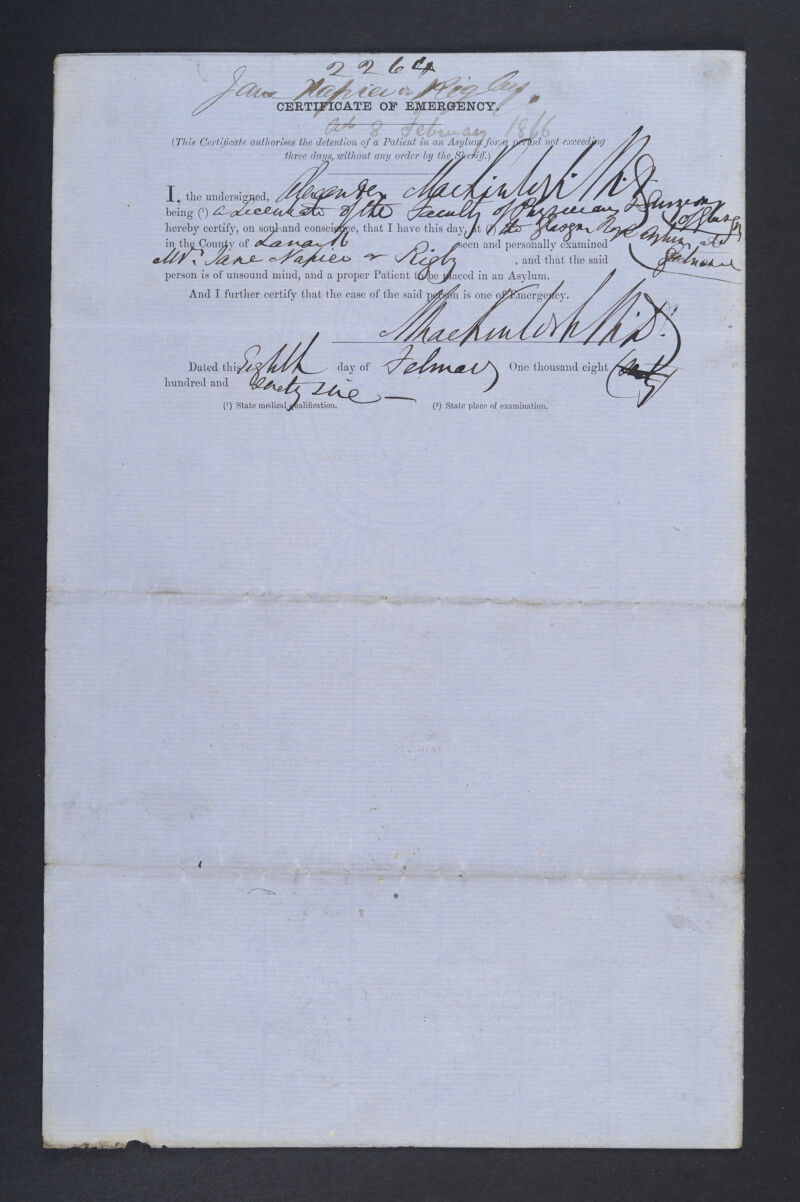 2264
Jane Napier or Rigby.
CERTIFICATE OF EMERGENCY.
8 February 1866
(This Certificate authorises the detention of a Patient in an Asylum for a period not exceeding
three days, without any order by the Sheriff.)
I, the undersigned, Alexander Mackintosh M.D.
being (¹) a Licentiate of the Faculty of Physicians & Surgeons of Glasgow
hereby certify, on soul and conscience, that I have this day, at (²) the Glasgow Royal Asylum at Gartnavel
in the County of Lanark seen and personally examined
Mrs. Jane Napier or Rigby , and that the said
person is of unsound mind, and a proper Patient to be placed in an Asylum.
And I further certify that the case of the said person is one of Emergency.
A Mackintosh M.D.
Dated this Eighth day of February One thousand eight
hundred and sixty six
(¹) State medical qualification. (²) State place of examination.